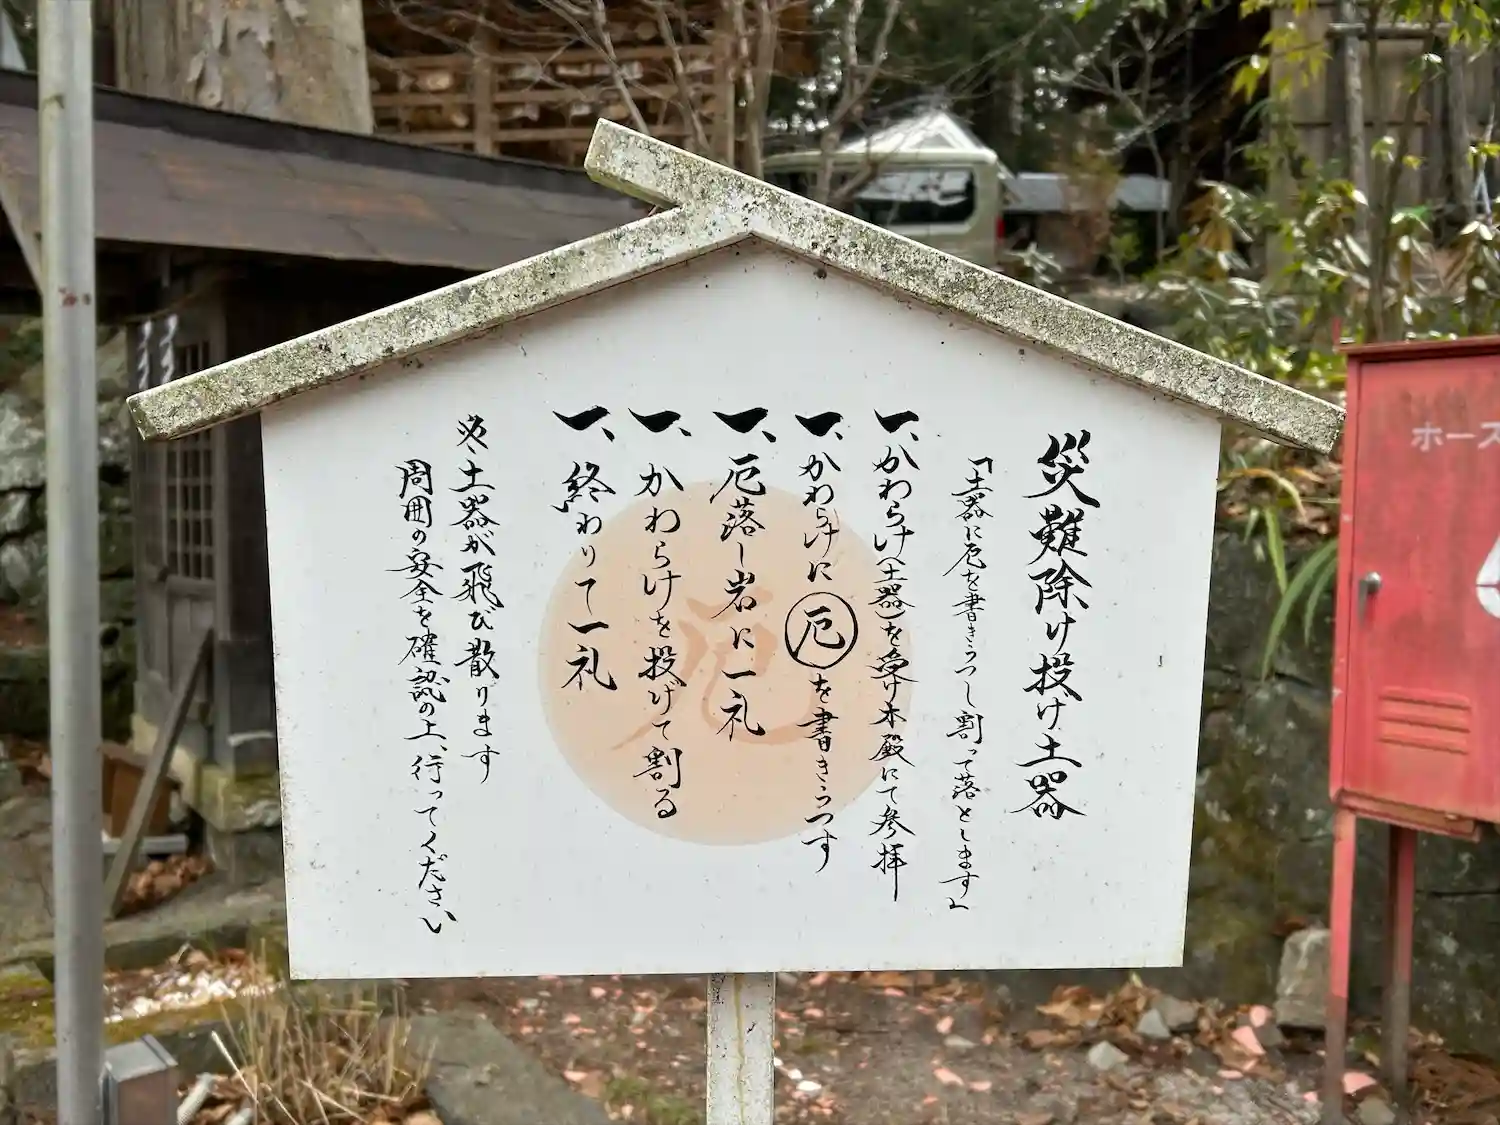 災難除け投け土器
「土器に厄を書きうつし割って落とします」
一、かわらけ(土器)を受け本殿にて参拝
一、かわらけに厄を書きうつす
一、厄落し岩に一礼
一、かわらけを投げて割る
一、終わりて一礼
※土器が飛び散ります
周囲の安全を確認の上、行ってください
厄
ホース